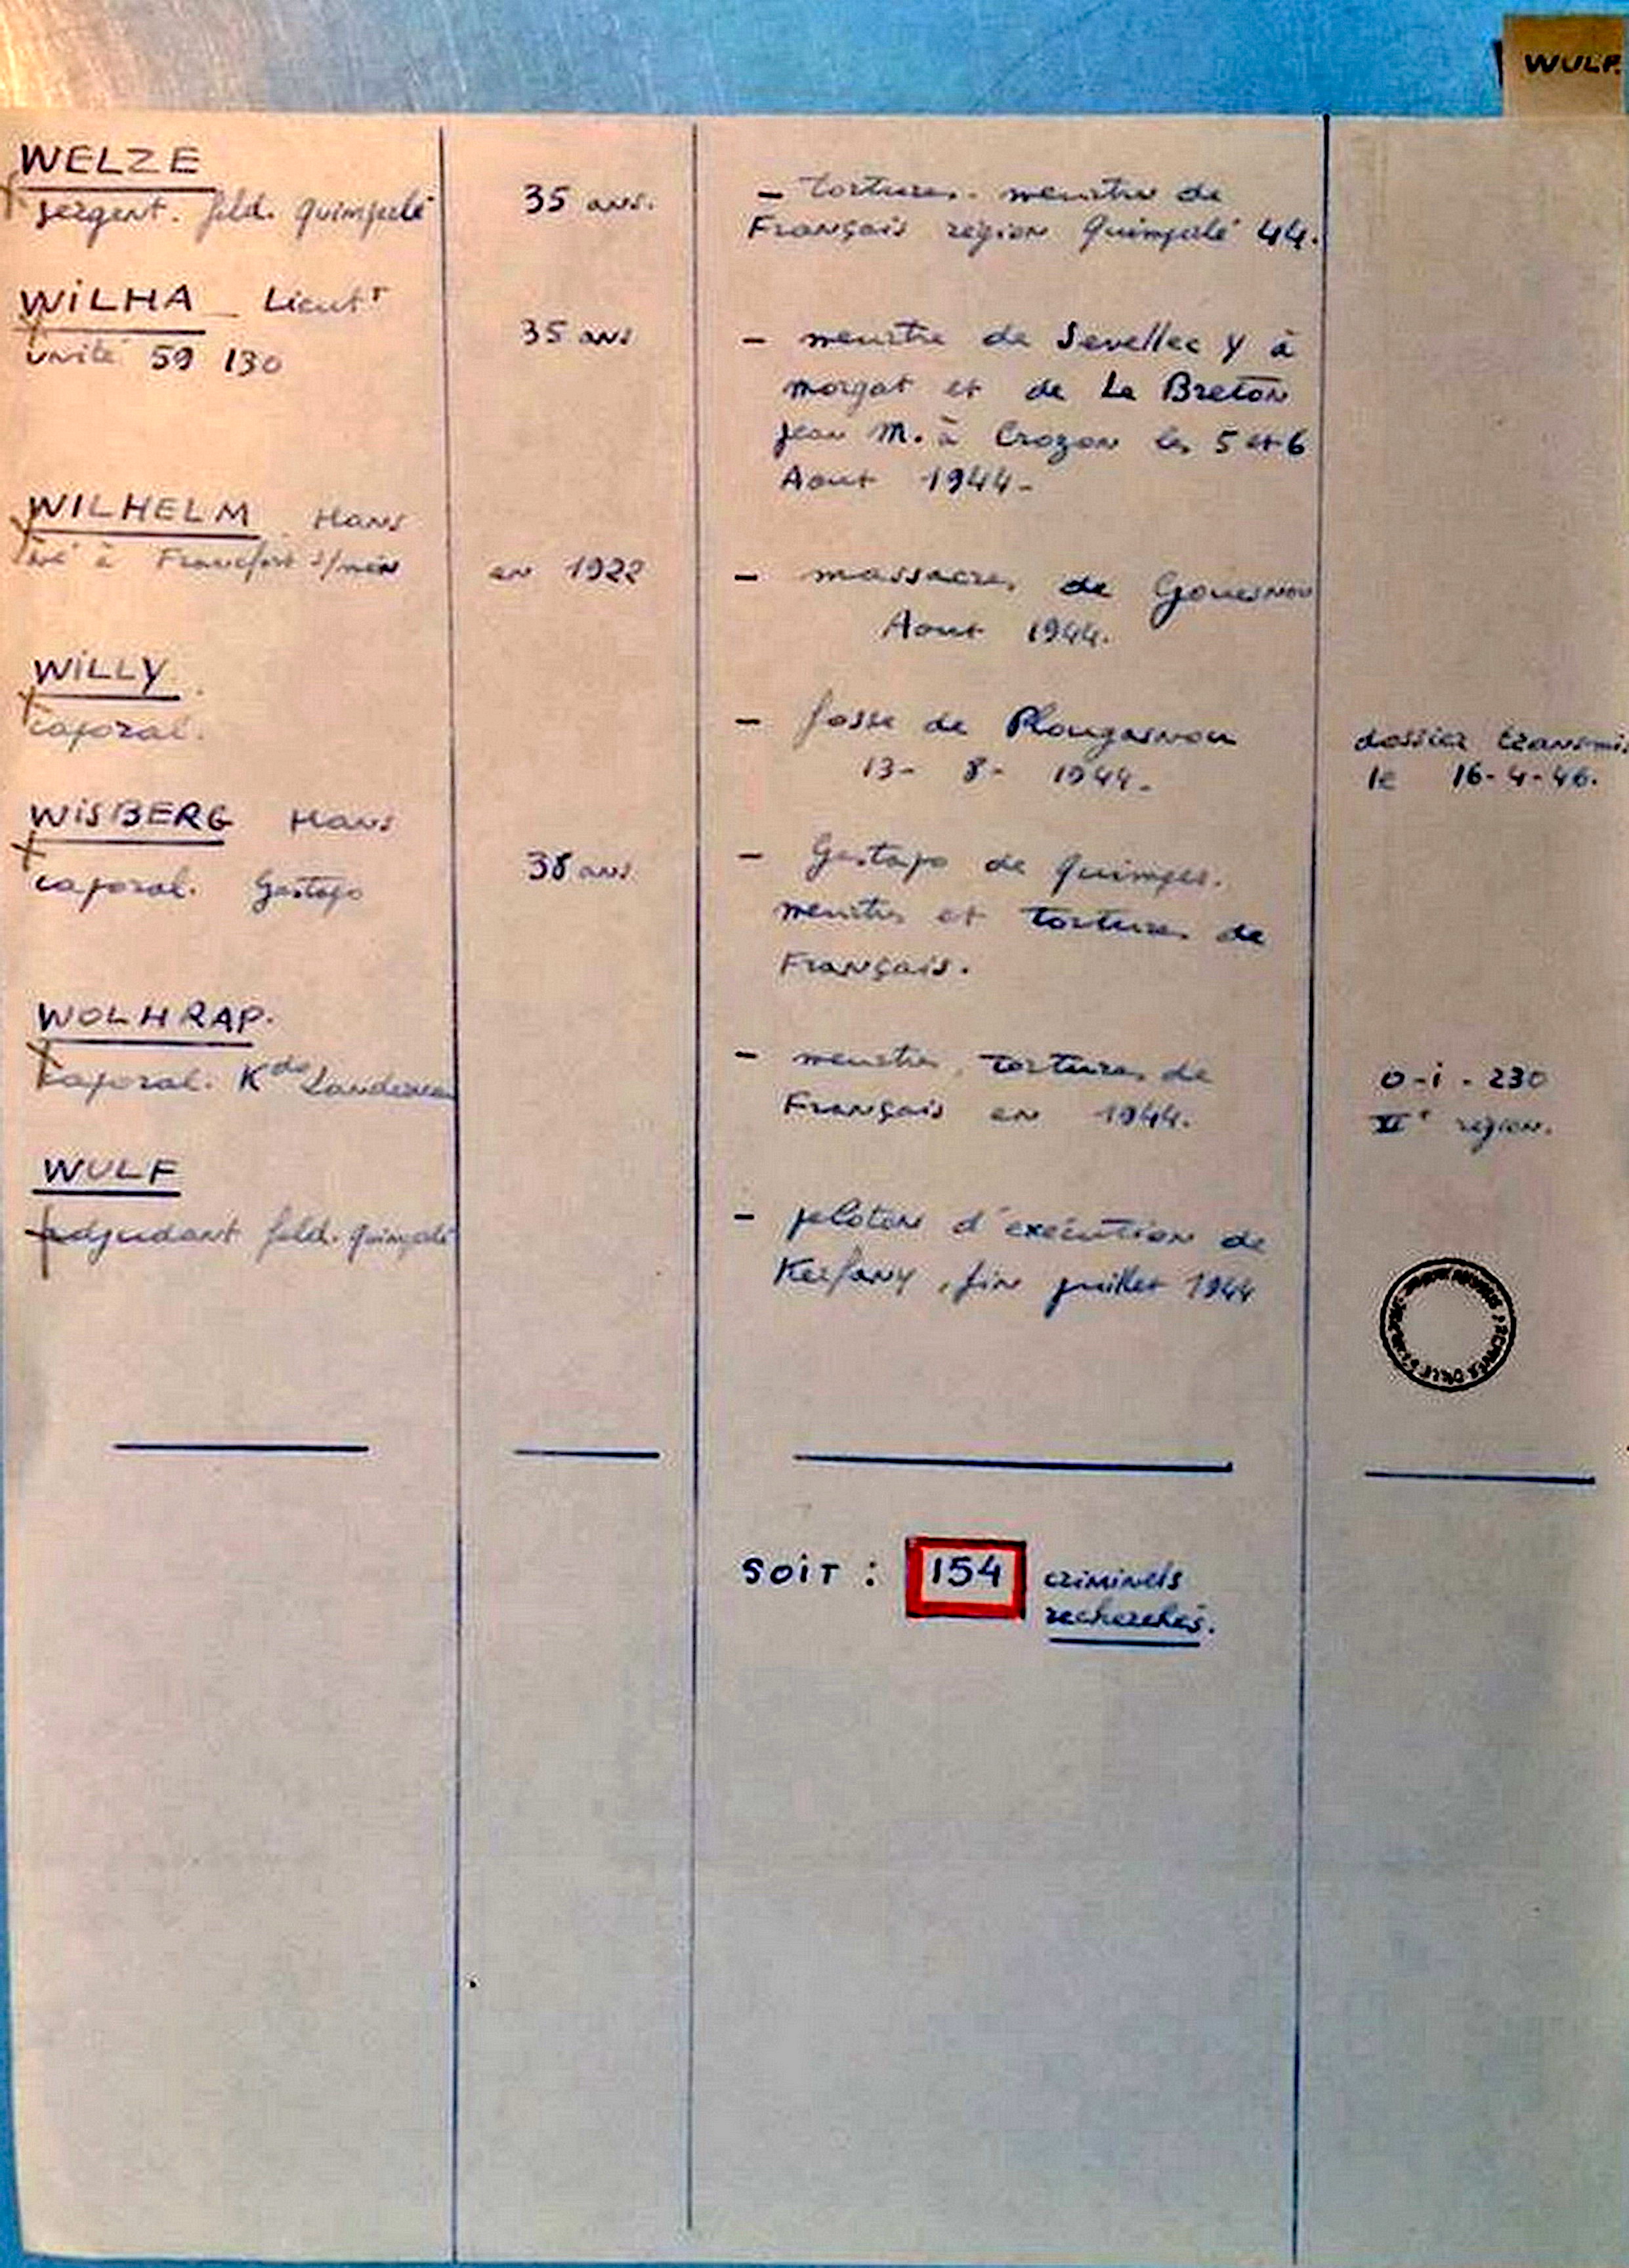 WULF.
WELZE
sergent. feld. Quimperlé
35 ans.
- tortures. meurtre de
Français région Quimperlé 44.
WILHA _ Lieutt
unité 59 130
35 ans
- meurtre de Sevellec Y à
morgat et de Le Breton
Jean M. à Crozon les 5 et 6
Aout 1944-
WILHELM Hans
né à Francfort s/mein
en 1922
- massacres de Gouesnou
Aout 1944.
WILLY
caporal.
- fosse de Plougasnou
13- 8- 1944-
dossier transmis
le 16-4-46.
WISBERG Hans
caporal. Gestapo
38 ans
- Gestapo de Quimper.
meurtres et tortures de
Français.
WOLHRAP.
caporal. Kdo Landerneau
- meurtres, tortures de
Français en 1944.
0-i-230
région.
WULF
adjudant feld. Quimperlé
- peloton d'exécution de
Kerfany, fin juillet 1944
SOIT : 154 criminels
recherchés.